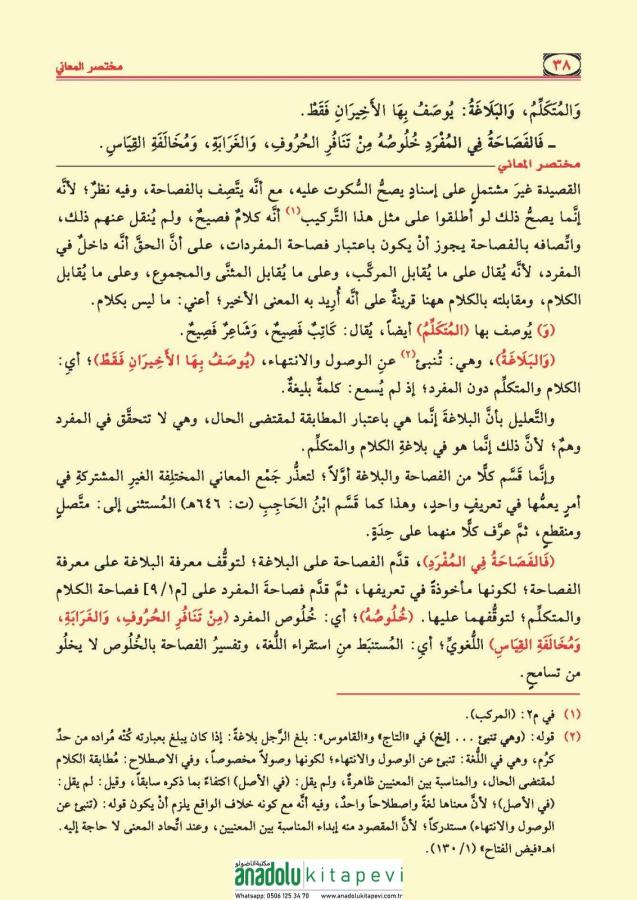 ٣٨
مختصر المعاني
وَالمُتَكَلِّمُ، وَالبَلَاغَةُ: يُوصَفُ بِهَا الأَخِيرَانِ فَقَطْ.
ـ فَالفَصَاحَةُ فِي المُفْرَدِ خُلُوصُهُ مِنْ تَنَافُرِ الحُرُوفِ، وَالغَرَابَةِ، وَمُخَالَفَةِ القِيَاسِ.
مختصر المعاني
القصيدة غيرَ مشتملٍ على إسنادٍ يصحُّ السُّكوت عليه، مع أنَّه يتَّصِف بالفصاحة، وفيه نظرٌ؛ لأنَّه
إنَّما يصحُّ ذلك لو أطلقوا على مثل هذا التَّركيب(١) أنَّه كلامٌ فصيحٌ، ولم يُنقل عنهم ذلك،
واتِّصافه بالفصاحة يجوز أنْ يكون باعتبار فصاحة المفردات، على أنَّ الحقَّ أنَّه داخلٌ في
المفرد، لأنَّه يُقال على ما يُقابل المركَّب، وعلى ما يقابل المثنَّى والمجموع، وعلى ما يُقابل
الكلام، ومقابلته بالكلام ههنا قرينةٌ على أنَّه أُريد به المعنى الأخير؛ أعني: ما ليس بكلام.
(وَ) يُوصف بها (المُتَكَلِّمُ) أيضاً، يُقال: كَاتِبٌ فَصِيحٌ، وَشَاعِرٌ فَصِيحٌ.
(وَالبَلَاغَةُ)، وهي: تُنبئ(٢) عنِ الوصول والانتهاء، (يُوصَفُ بِهَا الأَخِيرَانِ فَقَطْ)؛ أي:
الكلام والمتكلِّم دون المفرد؛ إذ لم يُسمع: كلمةٌ بليغةٌ.
والتَّعليل بأنَّ البلاغةَ إنَّما هي باعتبار المطابقة لمقتضى الحال، وهي لا تتحقَّق في المفرد
وهمٌ؛ لأنَّ ذلك إنَّما هو في بلاغةِ الكلام والمتكلِّم.
وإنَّما قسَّم كلًّا من الفصاحة والبلاغة أوَّلاً؛ لتعذُّر جَمْع المعاني المختلِفة الغيرِ المشتركةِ في
أمرٍ يعمُّها في تعريفٍ واحدٍ، وهذا كما قسَّم ابْنُ الحَاجِبِ (ت: ٦٤٦هـ) المُستثنى إلى: متَّصلٍ
ومنقطعٍ، ثمَّ عرَّف كلًّا منهما على حِدَةٍ.
(فَالفَصَاحَةُ فِي المُفْرَدِ)، قدَّم الفصاحة على البلاغة؛ لتوقُّف معرفة البلاغة على معرفة
الفصاحة؛ لكونها مأخوذةً في تعريفها، ثمَّ قدَّم فصاحةَ المفرد على [م٩/١] فصاحة الكلام
والمتكلِّم؛ لتوقُّفهما عليها. (خُلُوصُهُ)؛ أي: خُلُوص المفرد (مِنْ تَنَافُرِ الحُرُوفِ، وَالغَرَابَةِ،
وَمُخَالَفَةِ القِيَاسِ) اللُّغويِّ؛ أي: المُستنبَط منِ استقراء اللُّغة، وتفسيرُ الفصاحة بالخُلُوص لا يخلُو
من تسامحٍ.
(١) في م٢: (المركب).
(٢) قوله: (وهي تنبئ ... إلخ) في «التاج» و«القاموس»: بلغ الرَّجل بلاغةً: إذا كان يبلغ بعبارته كُنْه مُراده من حدِّ
كرُم، وهي في اللُّغة: تنبئ عن الوصول والانتهاء؛ لكونها وصولاً مخصوصاً، وفي الاصطلاح: مُطابقة الكلام
لمقتضى الحال، والمناسبة بين المعنيين ظاهرةٌ، ولم يقل: (في الأصل) اكتفاءً بما ذكره سابقاً، وقيل: لم يقل:
(في الأصل)؛ لأنَّ معناها لغةً واصطلاحاً واحدٌ، وفيه أنَّه مع كونه خلاف الواقع يلزم أنْ يكون قوله: (تنبئ عن
الوصول والانتهاء) مستدركاً؛ لأنَّ المقصود منه إبداء المناسبة بين المعنيين، وعند اتِّحاد المعنى لا حاجة إليه.
اهـ«فيض الفتاح» (١/ ١٣٠).
مكتبة الأناضولو
anadolu kitapevi
Whatsapp: 0506 125 34 70 www.anadolukitapevi.com.tr